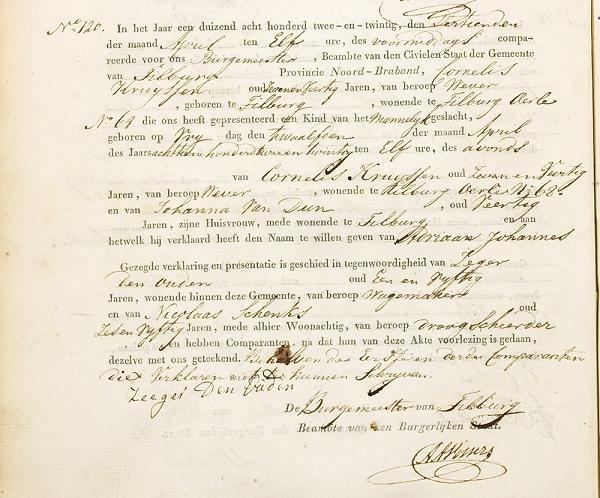 No 120. In het Jaar een duizend acht honderd twee-en-twintig, den Dertienden
der maand April ten Elf ure, des voormiddags compa-
reerde voor ons Burgemeester, Beambte van den Civielen Staat der Gemeente
van Tilburg Provincie Noord-Braband, Cornelis
Kruyssen oud Zevenen Veertig Jaren, van beroep Wever
, geboren te Tilburg, wonende te Tilburg Oerle
No 64 die ons heeft gepresenteerd een Kind van het Mannelyk geslacht,
geboren op Vry dag den twaalfsten der maand April
des Jaars achttien honderd twee en twintig ten Elf ure, des avonds
van Cornelis Kruyssen oud Zeven en Veertig
Jaren, van beroep Wever, wonende te Tilburg Oerle No 68
en van Johanna Van Dun, oud Veertig
Jaren, zijne Huisvrouw, mede wonende te Tilburg en aan
hetwelk hij verklaard heeft den Naam te willen geven van Adriaan Johannes
Gezegde verklaring en presentatie is geschied in tegenwoordigheid van Zeger
Den Ouden oud Een en Vyftig
Jaren, wonende binnen deze Gemeente, van beroep Wagemaker
en van Nicolaas Schenks oud
Zes en Vyftig Jaren, mede alhier Woonachtig, van beroep droogscheerder
en hebben Comparanten, na dat hun van deze Akte voorlezing is gedaan,
dezelve met ons geteekend. den Eersten en derde Comparanten
die Verklaren niet te kunnen Schryven.
Zeeger Den ouden
De Burgemeester van Tilburg
Beambte van den Burgerlijken Staat.